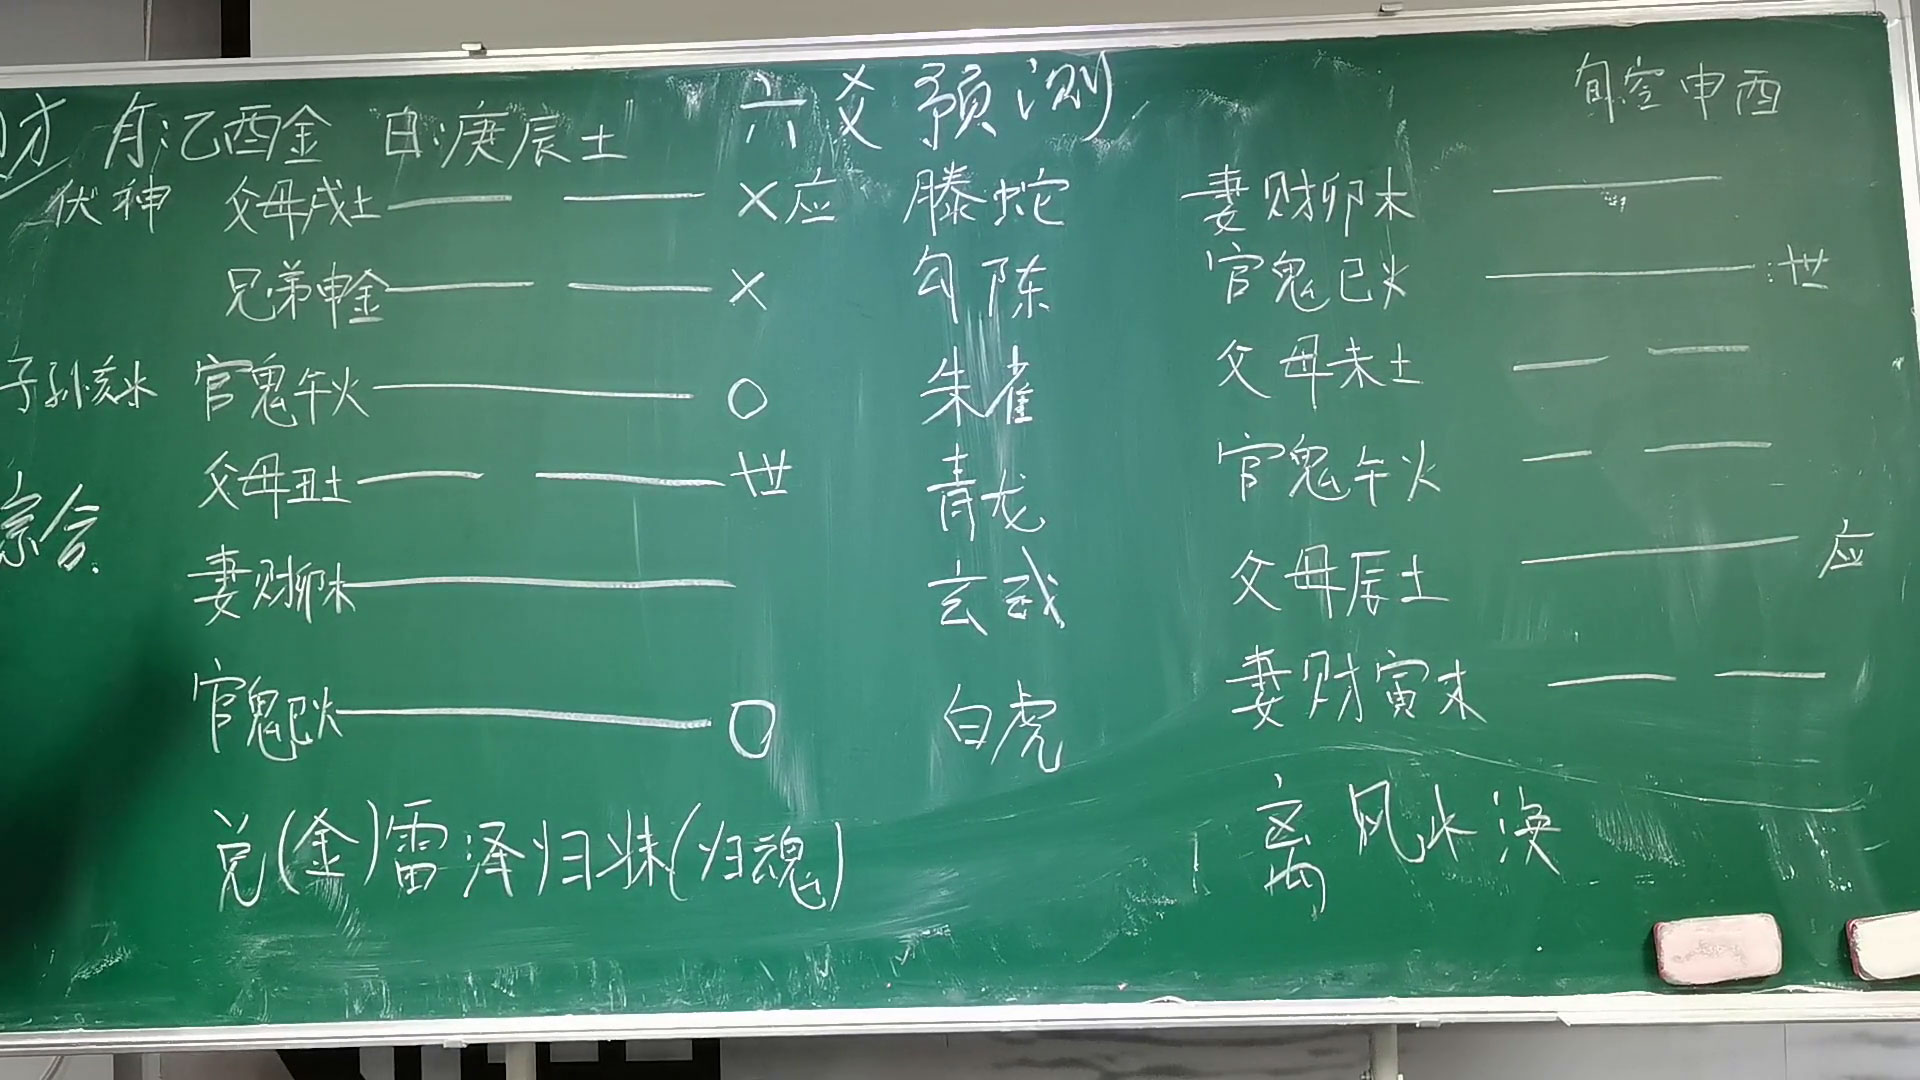 六爻预测
财 月:乙酉金 日:庚辰土 旬空申酉
伏神 父母戌土 ×应 螣蛇 妻财卯木
兄弟申金 × 勾陈 官鬼巳火 :世
子孙亥水 官鬼午火 ○ 朱雀 父母未土
父母丑土 世 青龙 官鬼午火
综合.
妻财卯木 玄武 父母辰土 应
官鬼巳火 ○ 白虎 妻财寅木
兑(金)雷泽归妹(归魂) 离 风水涣